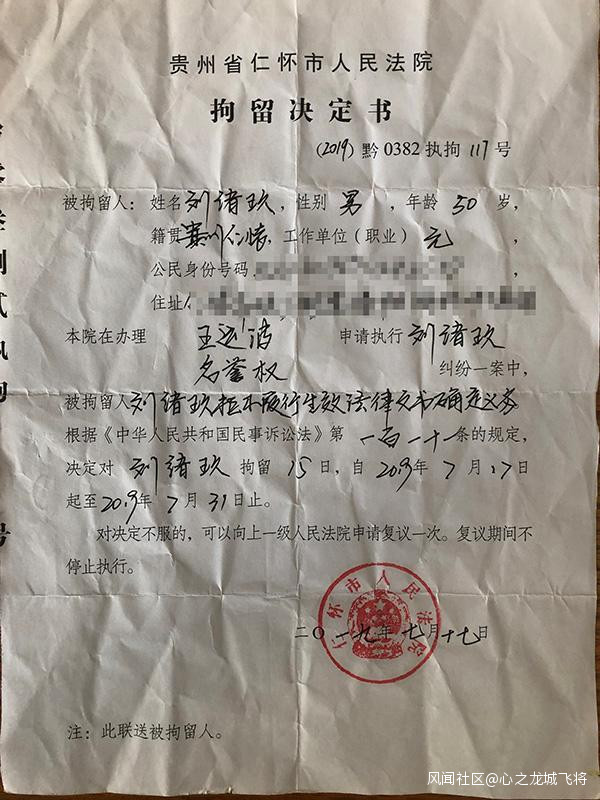 贵州省仁怀市人民法院
拘留决定书
(2019) 黔 0382 执拘 117 号
被拘留人：姓名刘绪玖，性别 男 ，年龄 50 岁，
籍贯贵州仁怀，工作单位（职业） 无 ，
公民身份号码
住址
本院在办理 王远波 申请执行 刘绪玖
名誉权 纠纷一案中，
被拘留人刘绪玖拒不履行生效法律文书确定义务
根据《中华人民共和国民事诉讼法》第 一百一十一条的规定，
决定对 刘绪玖 拘留 15日，自 2019年 7 月 17日
起至2019年 7 月 31日止。
对决定不服的，可以向上一级人民法院申请复议一次。复议期间不
停止执行。
仁怀市人民法院
二〇一九年七月十七日
注：此联送被拘留人。
风闻社区@心之龙城飞将